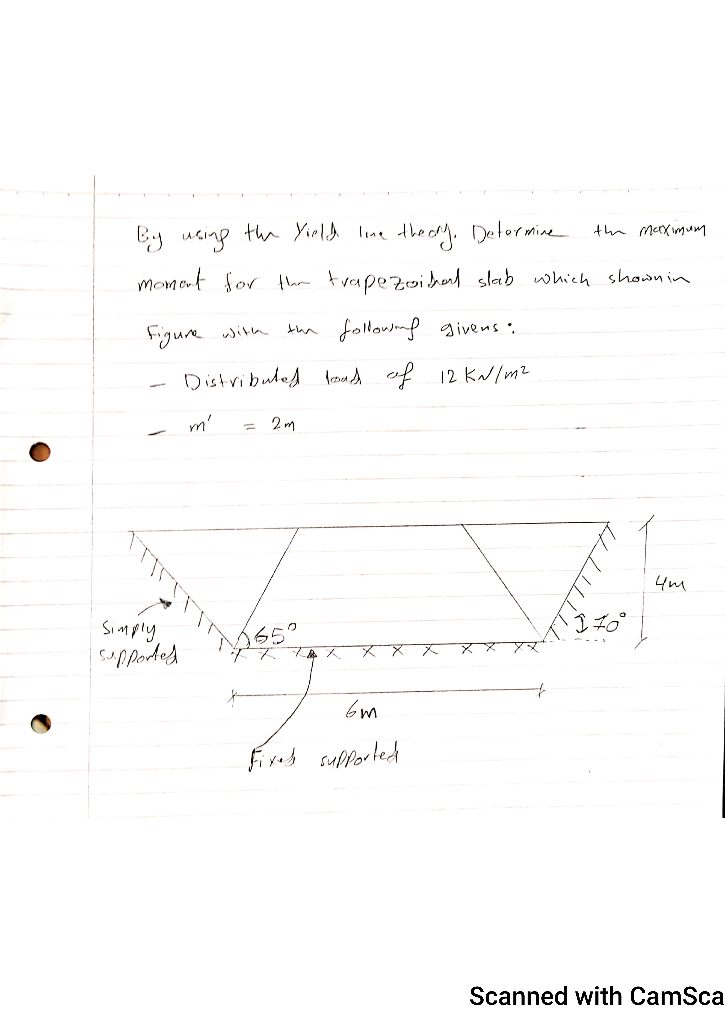 By using the Yield line theory. Determine the maximum
moment for the trapezoibal slab which shown in
Figure with the following givens:
- Distributed load of 12 KN/m²
- m' = 2m
4m
Simply
supported
65°
70°
6m
Fixed supported
Scanned with CamSca